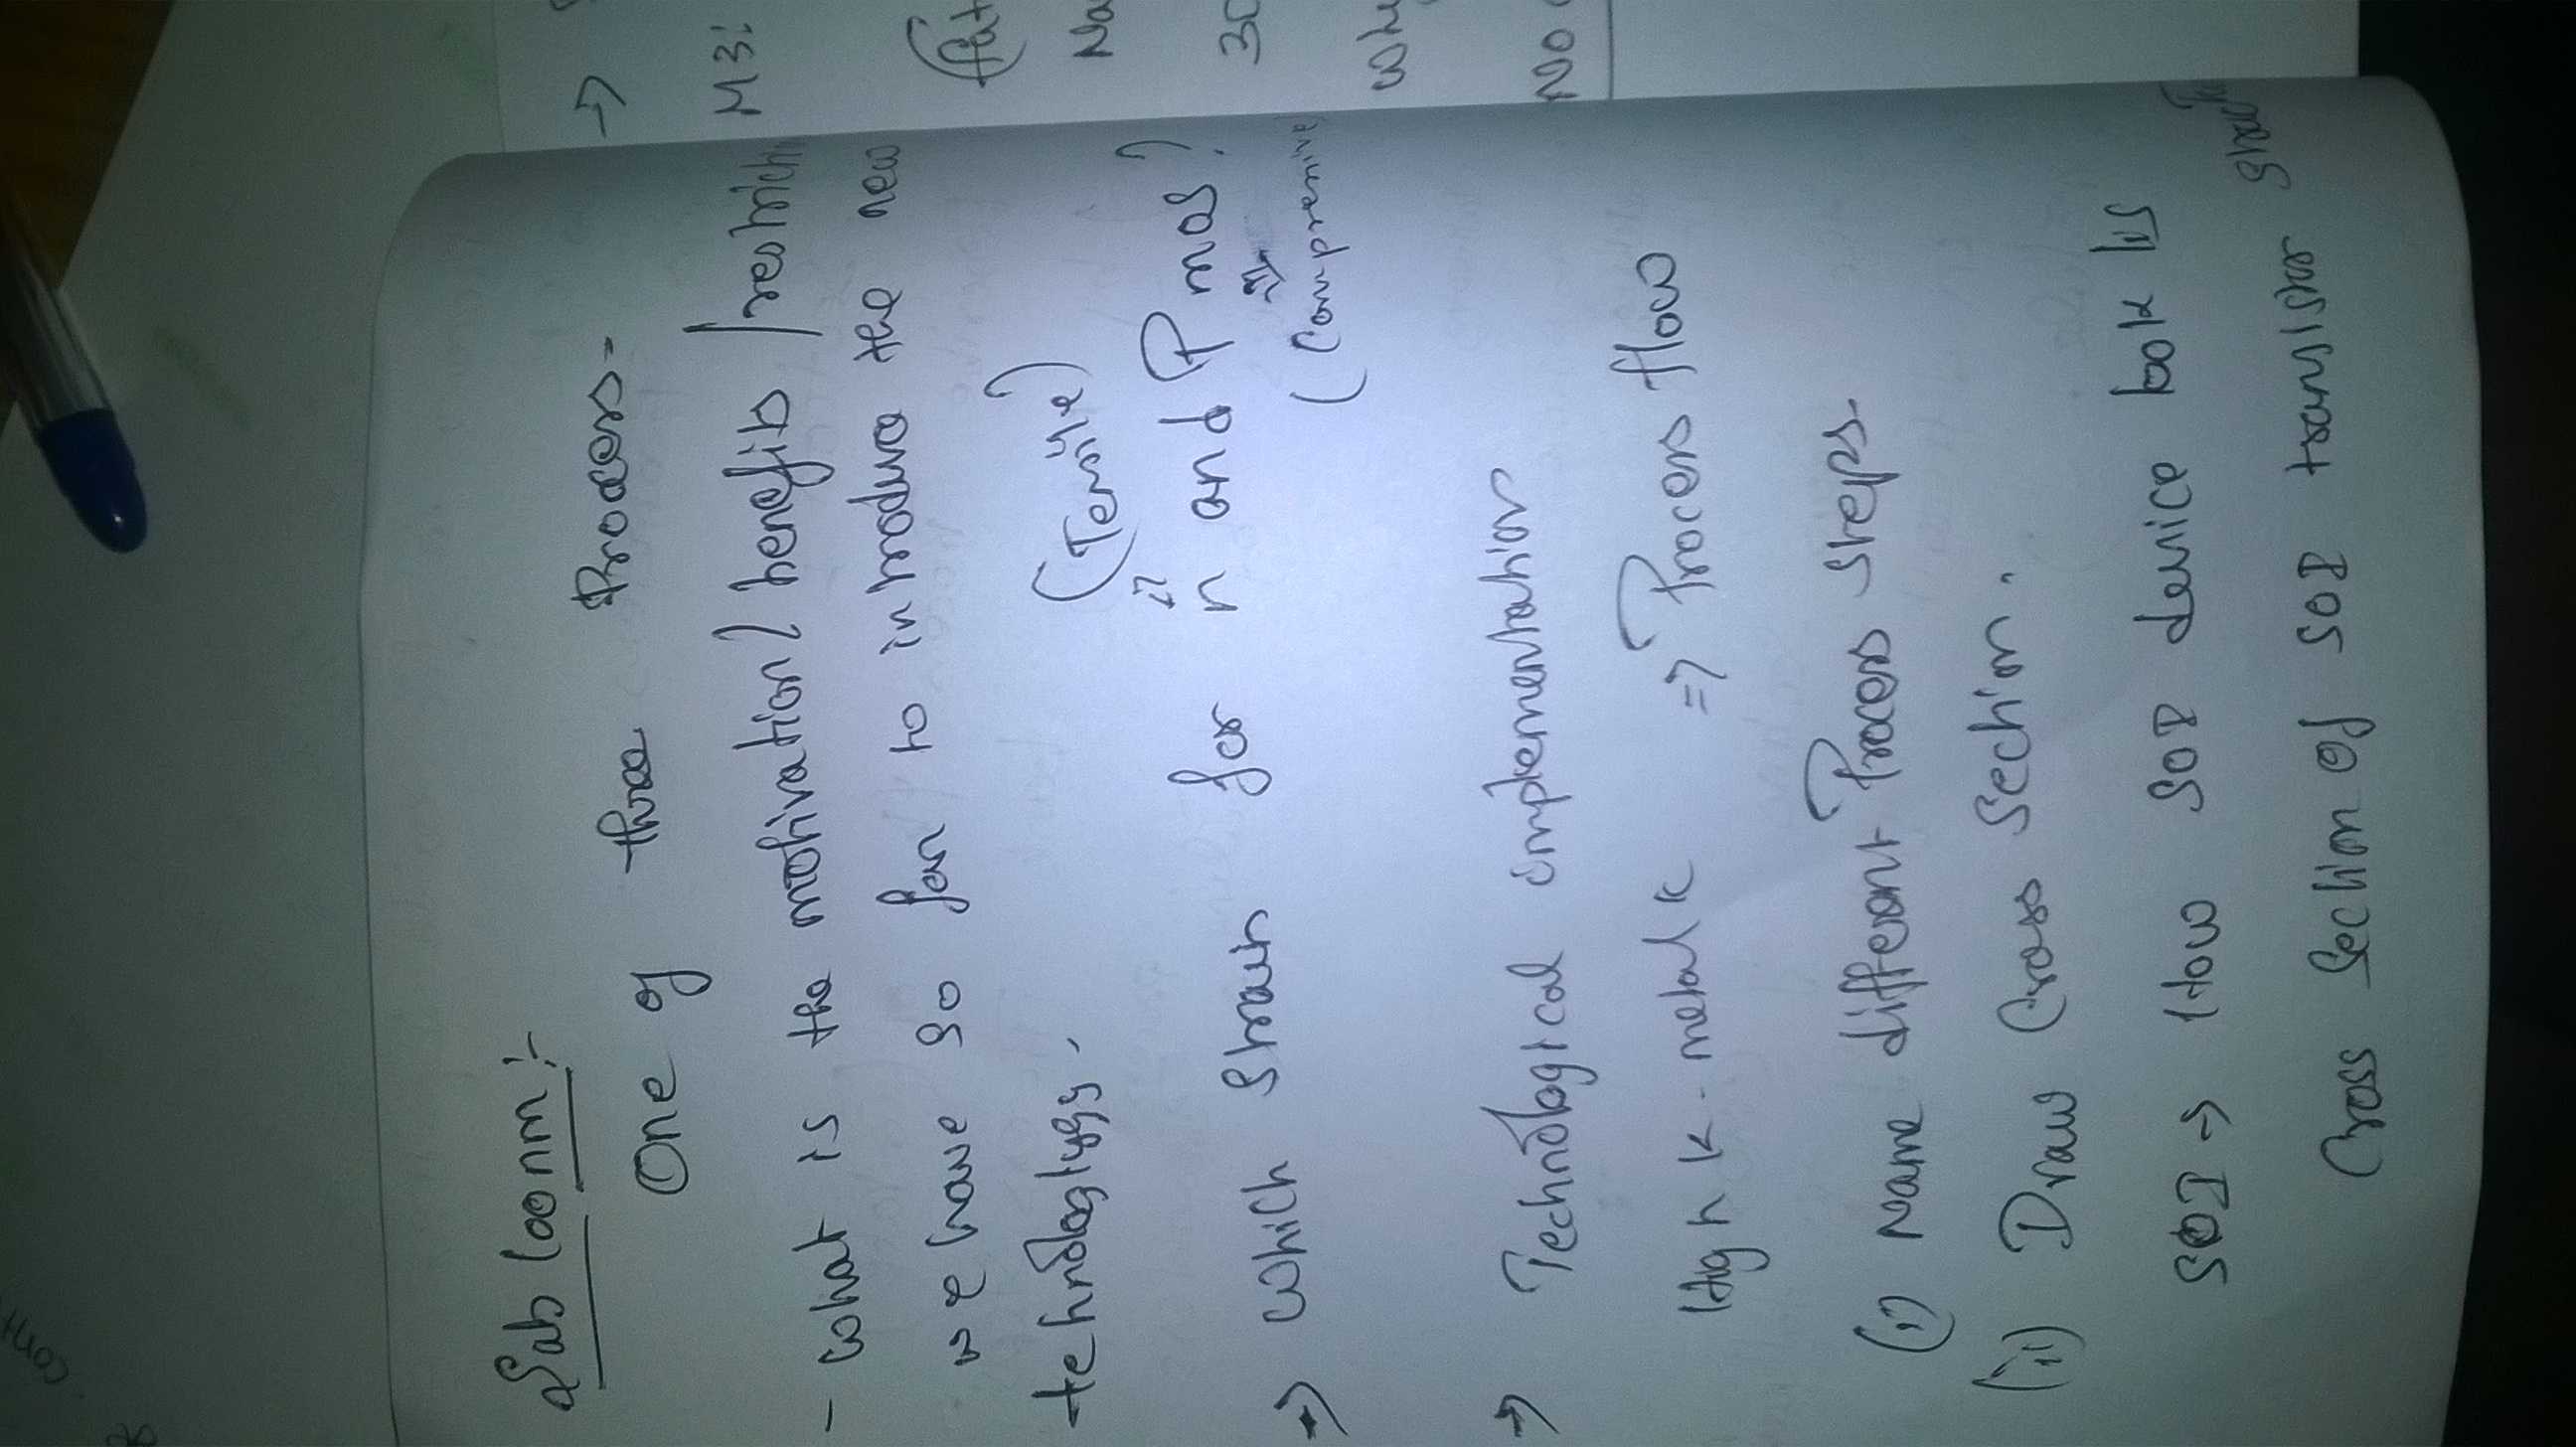 cont
Sub 100nm :-
One of three Process-
- What is the motivation / benefits / restrich
we have so far to introduce the new
tehnologlygy.
(Tensile)
=> Which Strain for n and P mos?
(Compressive
=> Technological implementation
High k - metal k => Process flow
(i) Name different Process steps.
(ii) Draw Cross Section.
SOI => How SOI device look lis
Cross Section of SOI transistor struct
=>
M3:
Na
30
Why
No